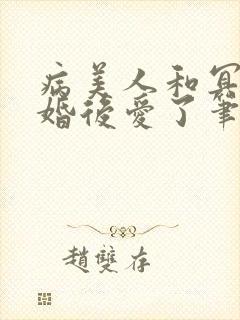 病美人和冥
婚後愛了筆
趙雙存